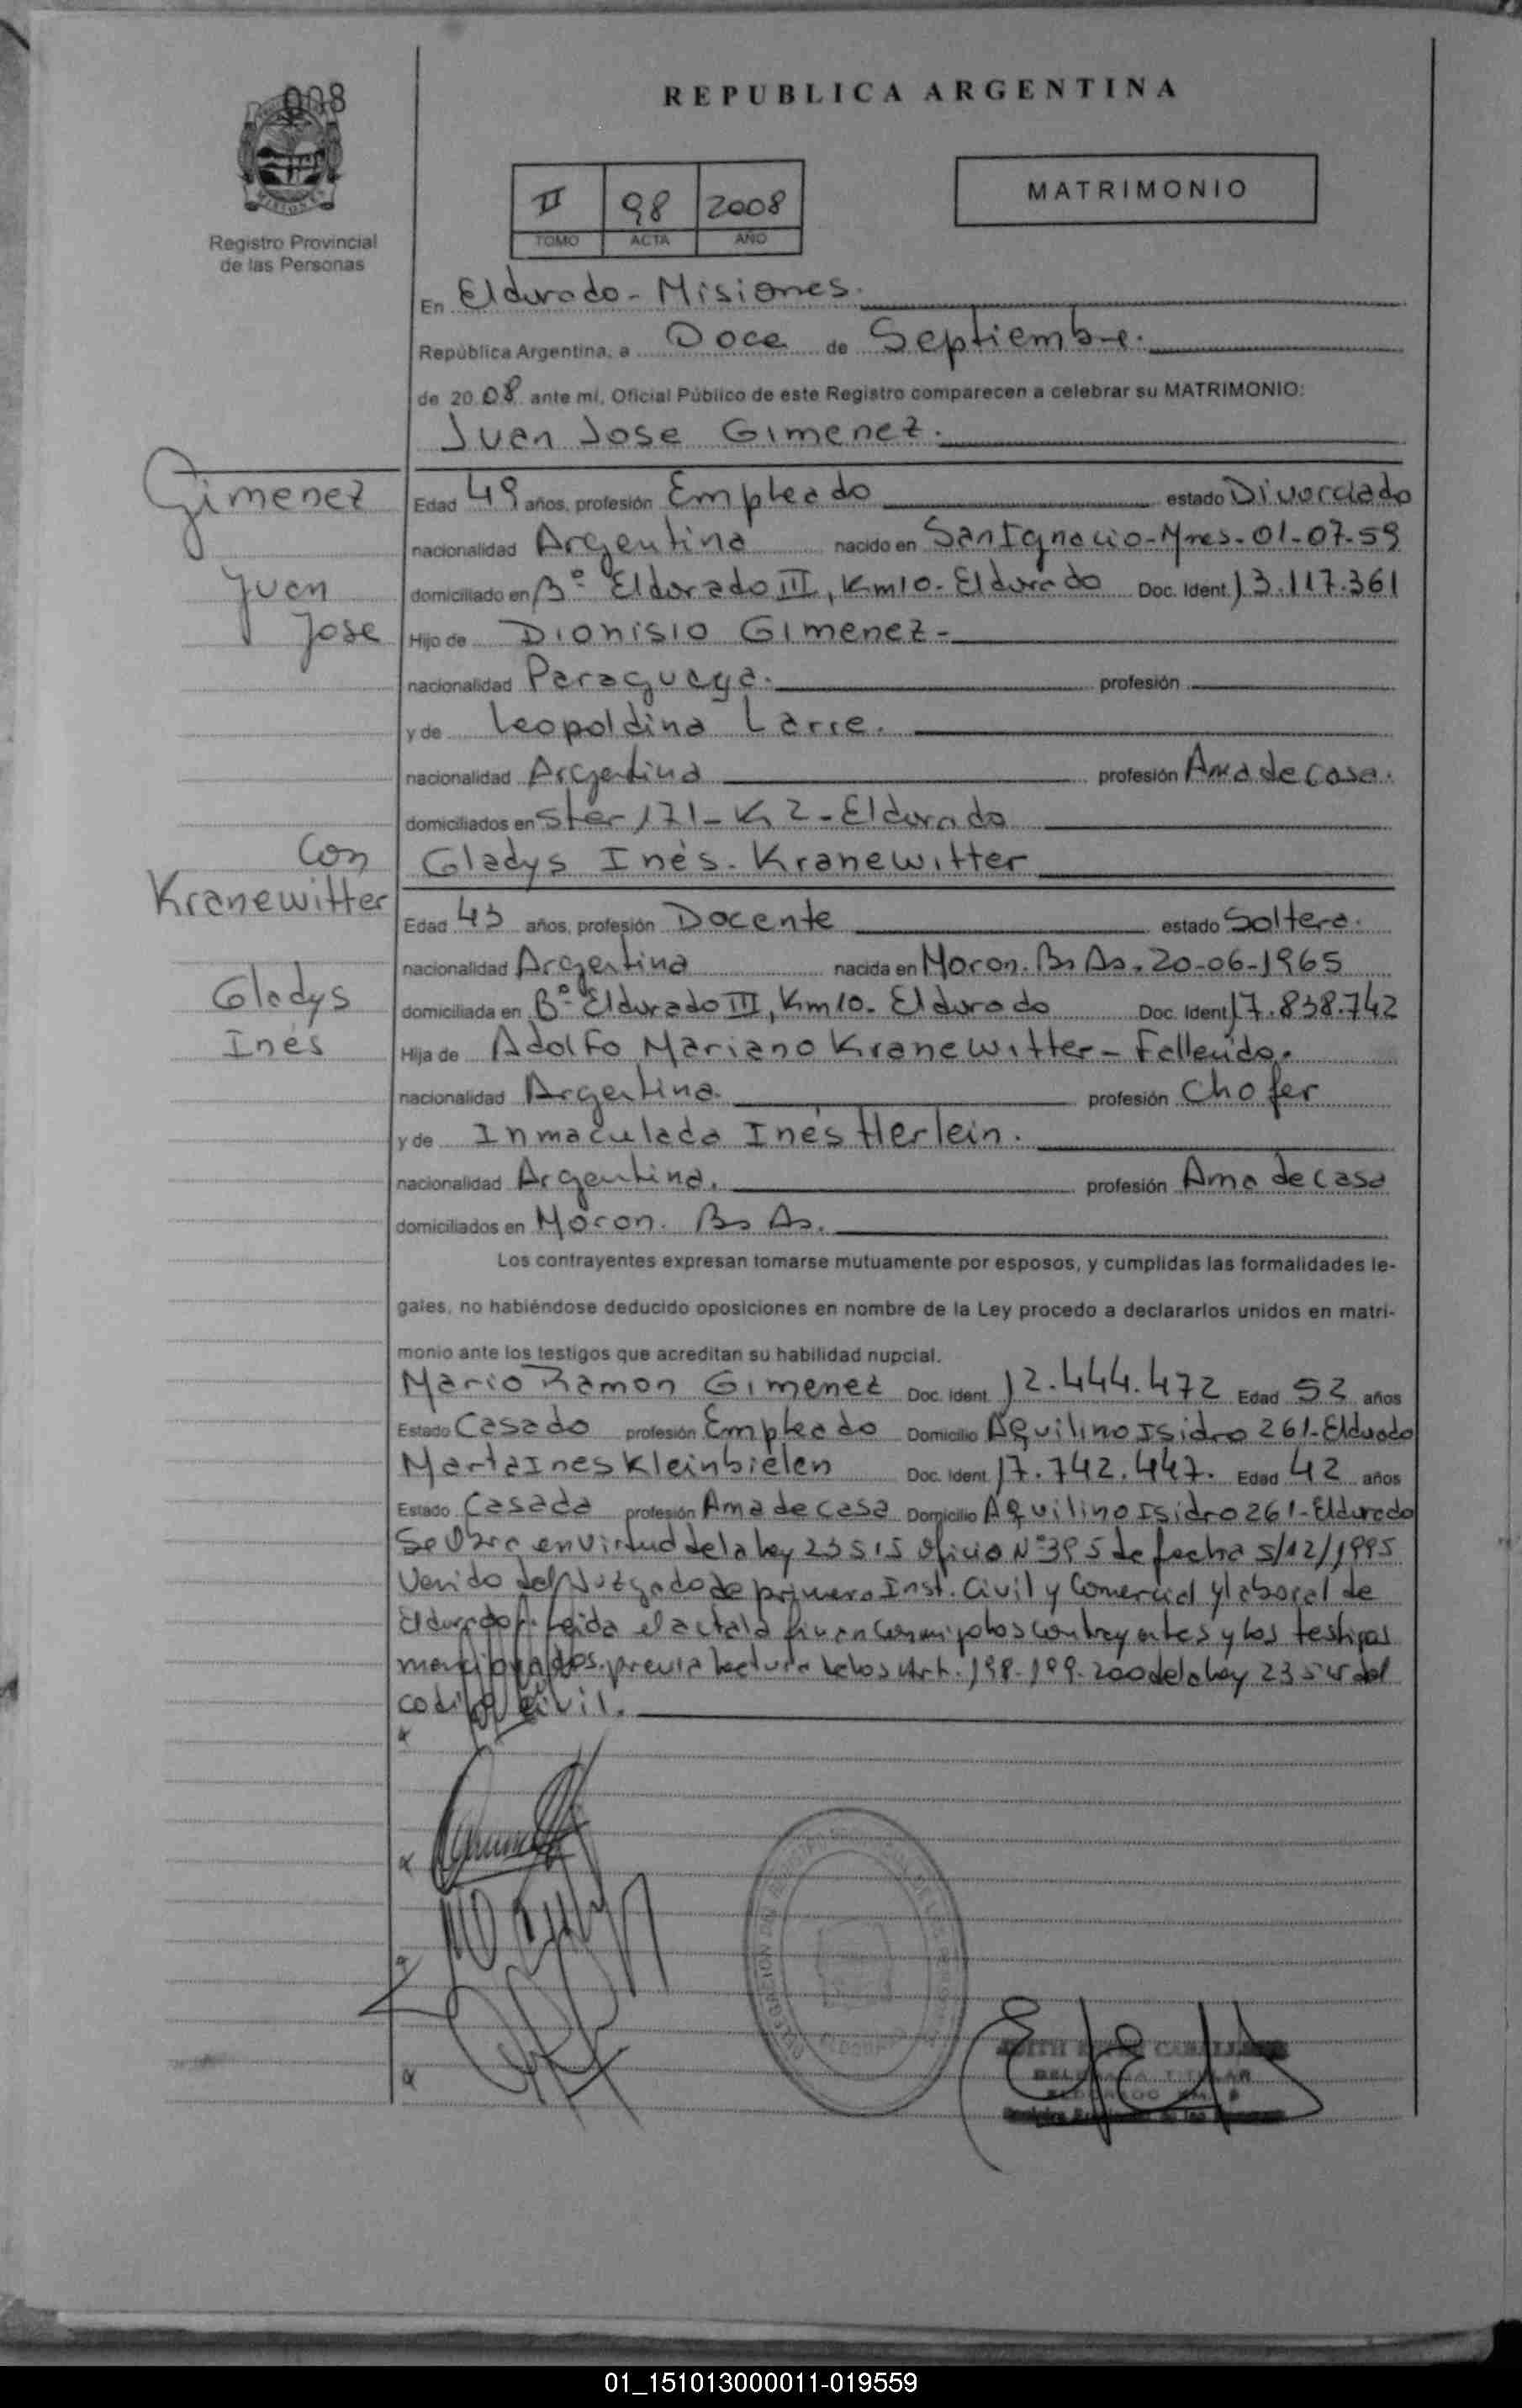 008
REPUBLICA ARGENTINA
II 98 2008
TOMO ACTA AÑO
MATRIMONIO
Registro Provincial
de las Personas
En Eldorado - Misiones.
República Argentina, a Doce de Septiembre.
de 2008 ante mí, Oficial Público de este Registro comparecen a celebrar su MATRIMONIO:
Juan Jose Gimenez.
Gimenez
Juan
Jose
Edad 49 años, profesión Empleado estado Divorciado
nacionalidad Argentina nacido en San Ignacio-Mnes-01-07-59
domiciliado en Bº Eldorado III, Km10-Eldorado Doc. Ident. 13.117.361
Hijo de Dionisio Gimenez-
nacionalidad Paraguaya. profesión
y de Leopoldina Larre.
nacionalidad Argentina profesión Ama de Casa.
domiciliados en Ster 171-K 2-Eldorado
Con
Kranewitter
Gladys
Inés
Gladys Inés. Kranewitter
Edad 43 años, profesión Docente estado Soltera.
nacionalidad Argentina nacida en Moron. Bs As. 20-06-1965
domiciliada en Bº Eldorado III, Km10. Eldorado Doc. Ident 17.838.742
Hija de Adolfo Mariano Kranewitter-Fallecido.
nacionalidad Argentina. profesión Chofer
y de Inmaculada Inés Herlein.
nacionalidad Argentina. profesión Ama de casa
domiciliados en Moron. Bs As.
Los contrayentes expresan tomarse mutuamente por esposos, y cumplidas las formalidades le-
gales, no habiéndose deducido oposiciones en nombre de la Ley procedo a declararlos unidos en matri-
monio ante los testigos que acreditan su habilidad nupcial.
Mario Ramon Gimenez Doc. Ident. 12.444.472 Edad 52 años
Estado Casado profesión Empleado Domicilio Aquilino Isidro 261-Eldorado
Marta Ines Kleinbielen Doc. Ident. 17.742.447. Edad 42 años
Estado Casada profesión Ama de casa Domicilio Aquilino Isidro 261-Eldorado
Se en virtud de la ley 23515 Oficio Nº395 de fecha 5/12/1995
Venido del Juzgado de primera Inst. Civil y Comercial y laboral de
Eldorado. Leida el acta la firman conmigo los contrayentes y los testigos
mencionados. previa lectura de los Art. 198-199-200 de la ley 23515 del
codigo civil.
CABALLERO
DELEGADA TITULAR
ELDORADO KM.
01_151013000011-019559